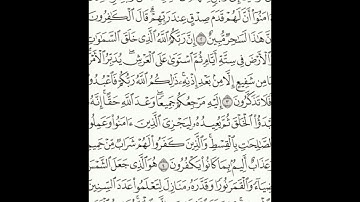 ءَامَنُوٓا۟ أَنَّ لَهُمْ قَدَمَ صِدْقٍ عِندَ رَبِّهِمْ ۗ قَالَ ٱلْكَٰفِرُونَ
إِنَّ هَٰذَا لَسَٰحِرٌ مُّبِينٌ ٢ إِنَّ رَبَّكُمُ ٱللَّهُ ٱلَّذِى خَلَقَ ٱلسَّمَٰوَٰتِ
ٱلْأَرْضَ فِى سِتَّةِ أَيَّامٍ ثُمَّ ٱسْتَوَىٰ عَلَى ٱلْعَرْشِ ۖ يُدَبِّرُ ٱلْأَمْرَ
مَا مِن شَفِيعٍ إِلَّا مِنۢ بَعْدِ إِذْنِهِۦ ۚ ذَٰلِكُمُ ٱللَّهُ رَبُّكُمْ فَٱعْبُدُوهُ
فَلَا تَذَكَّرُونَ ٣ إِلَيْهِ مَرْجِعُكُمْ جَمِيعًا ۖ وَعْدَ ٱللَّهِ حَقًّا ۚ إِنَّهُۥ
يَبْدَؤُا۟ ٱلْخَلْقَ ثُمَّ يُعِيدُهُۥ لِيَجْزِىَ ٱلَّذِينَ ءَامَنُوا۟ وَعَمِلُوا۟
ٱلصَّٰلِحَٰتِ بِٱلْقِسْطِ ۚ وَٱلَّذِينَ كَفَرُوا۟ لَهُمْ شَرَابٌ مِّنْ حَمِيمٍ
عَذَابٌ أَلِيمٌۢ بِمَا كَانُوا۟ يَكْفُرُونَ ٤ هُوَ ٱلَّذِى جَعَلَ ٱلشَّمْسَ
ضِيَآءً وَٱلْقَمَرَ نُورًا وَقَدَّرَهُۥ مَنَازِلَ لِتَعْلَمُوا۟ عَدَدَ ٱلسِّنِينَ